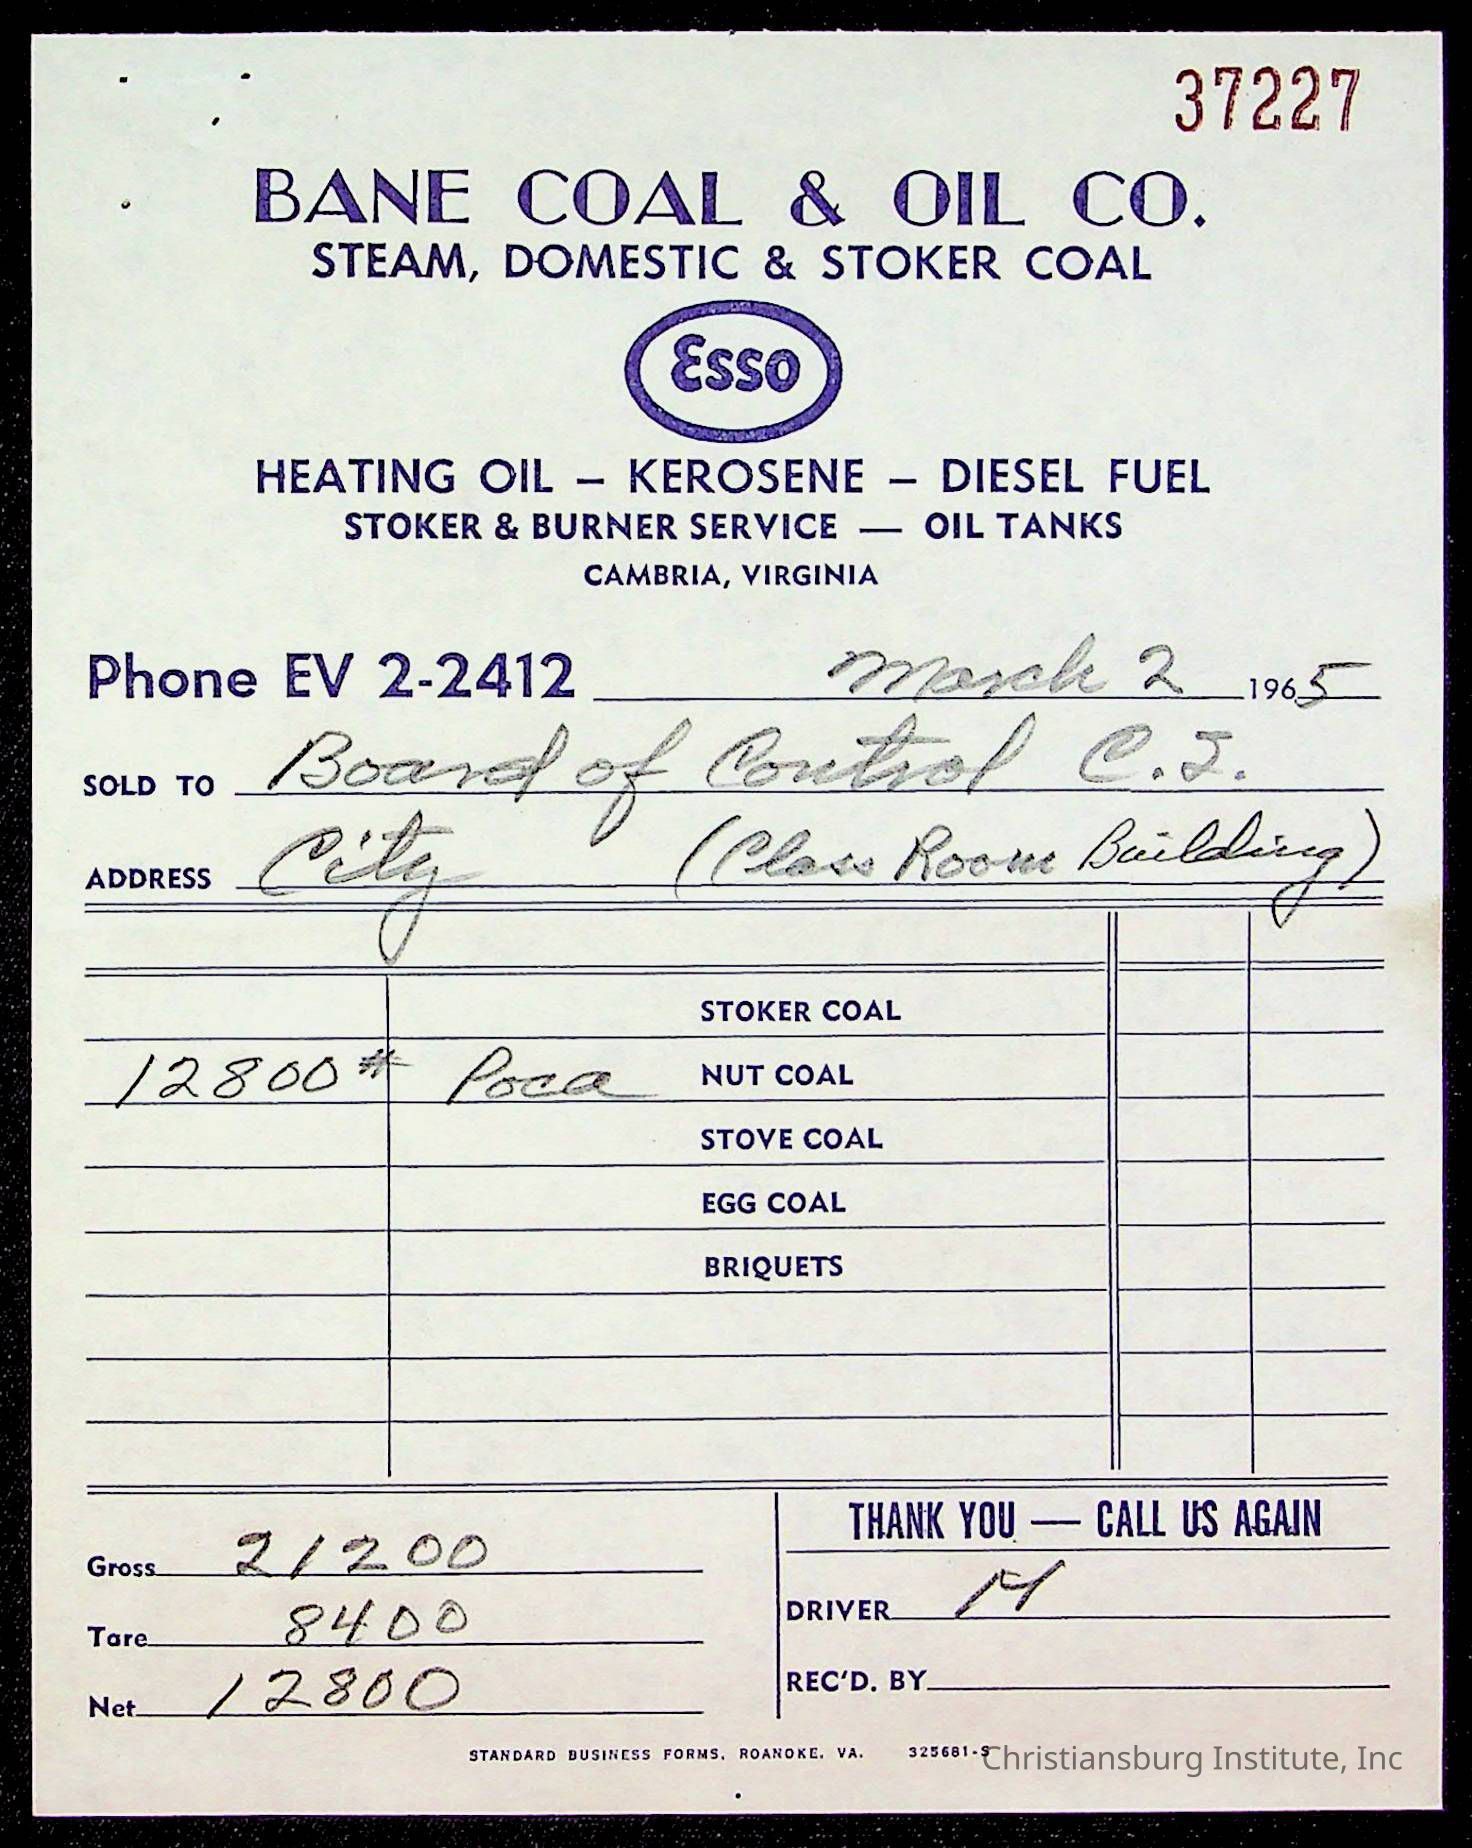 37227
BANE COAL & OIL CO.
STEAM, DOMESTIC & STOKER COAL
Esso
HEATING OIL – KEROSENE – DIESEL FUEL
STOKER & BURNER SERVICE — OIL TANKS
CAMBRIA, VIRGINIA
Phone EV 2-2412 March 2 1965
SOLD TO Board of Control C.I.
ADDRESS City (Class Room Building)
STOKER COAL
12800# Poca NUT COAL
STOVE COAL
EGG COAL
BRIQUETS
THANK YOU — CALL US AGAIN
Gross 21200
DRIVER M
Tare 8400
REC'D. BY
Net 12800
STANDARD BUSINESS FORMS, ROANOKE, VA. 325681-S
Christiansburg Institute, Inc